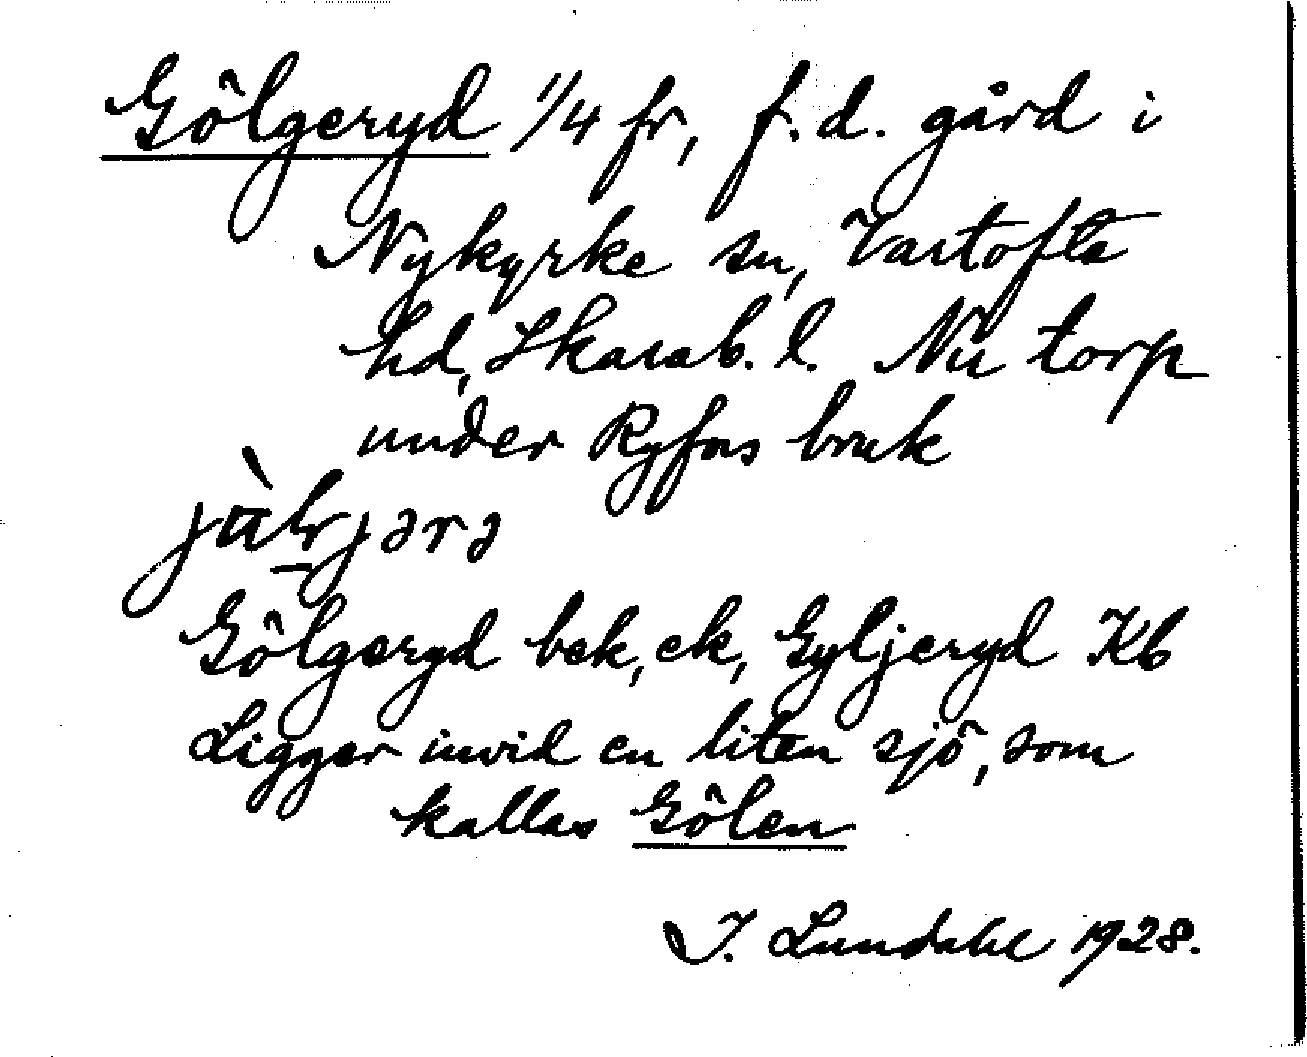 Gölgeryd 1/4 fr, f.d. gård i
Nykyrke sn, Vartofta
hd, Skarab. l. Nu torp
under Ryfors bruk
Gölgeryd bek, ek, Gyljeryd Kb
Ligger invid en liten sjö, som
kallas Gölen
I. Lundahl 1928.